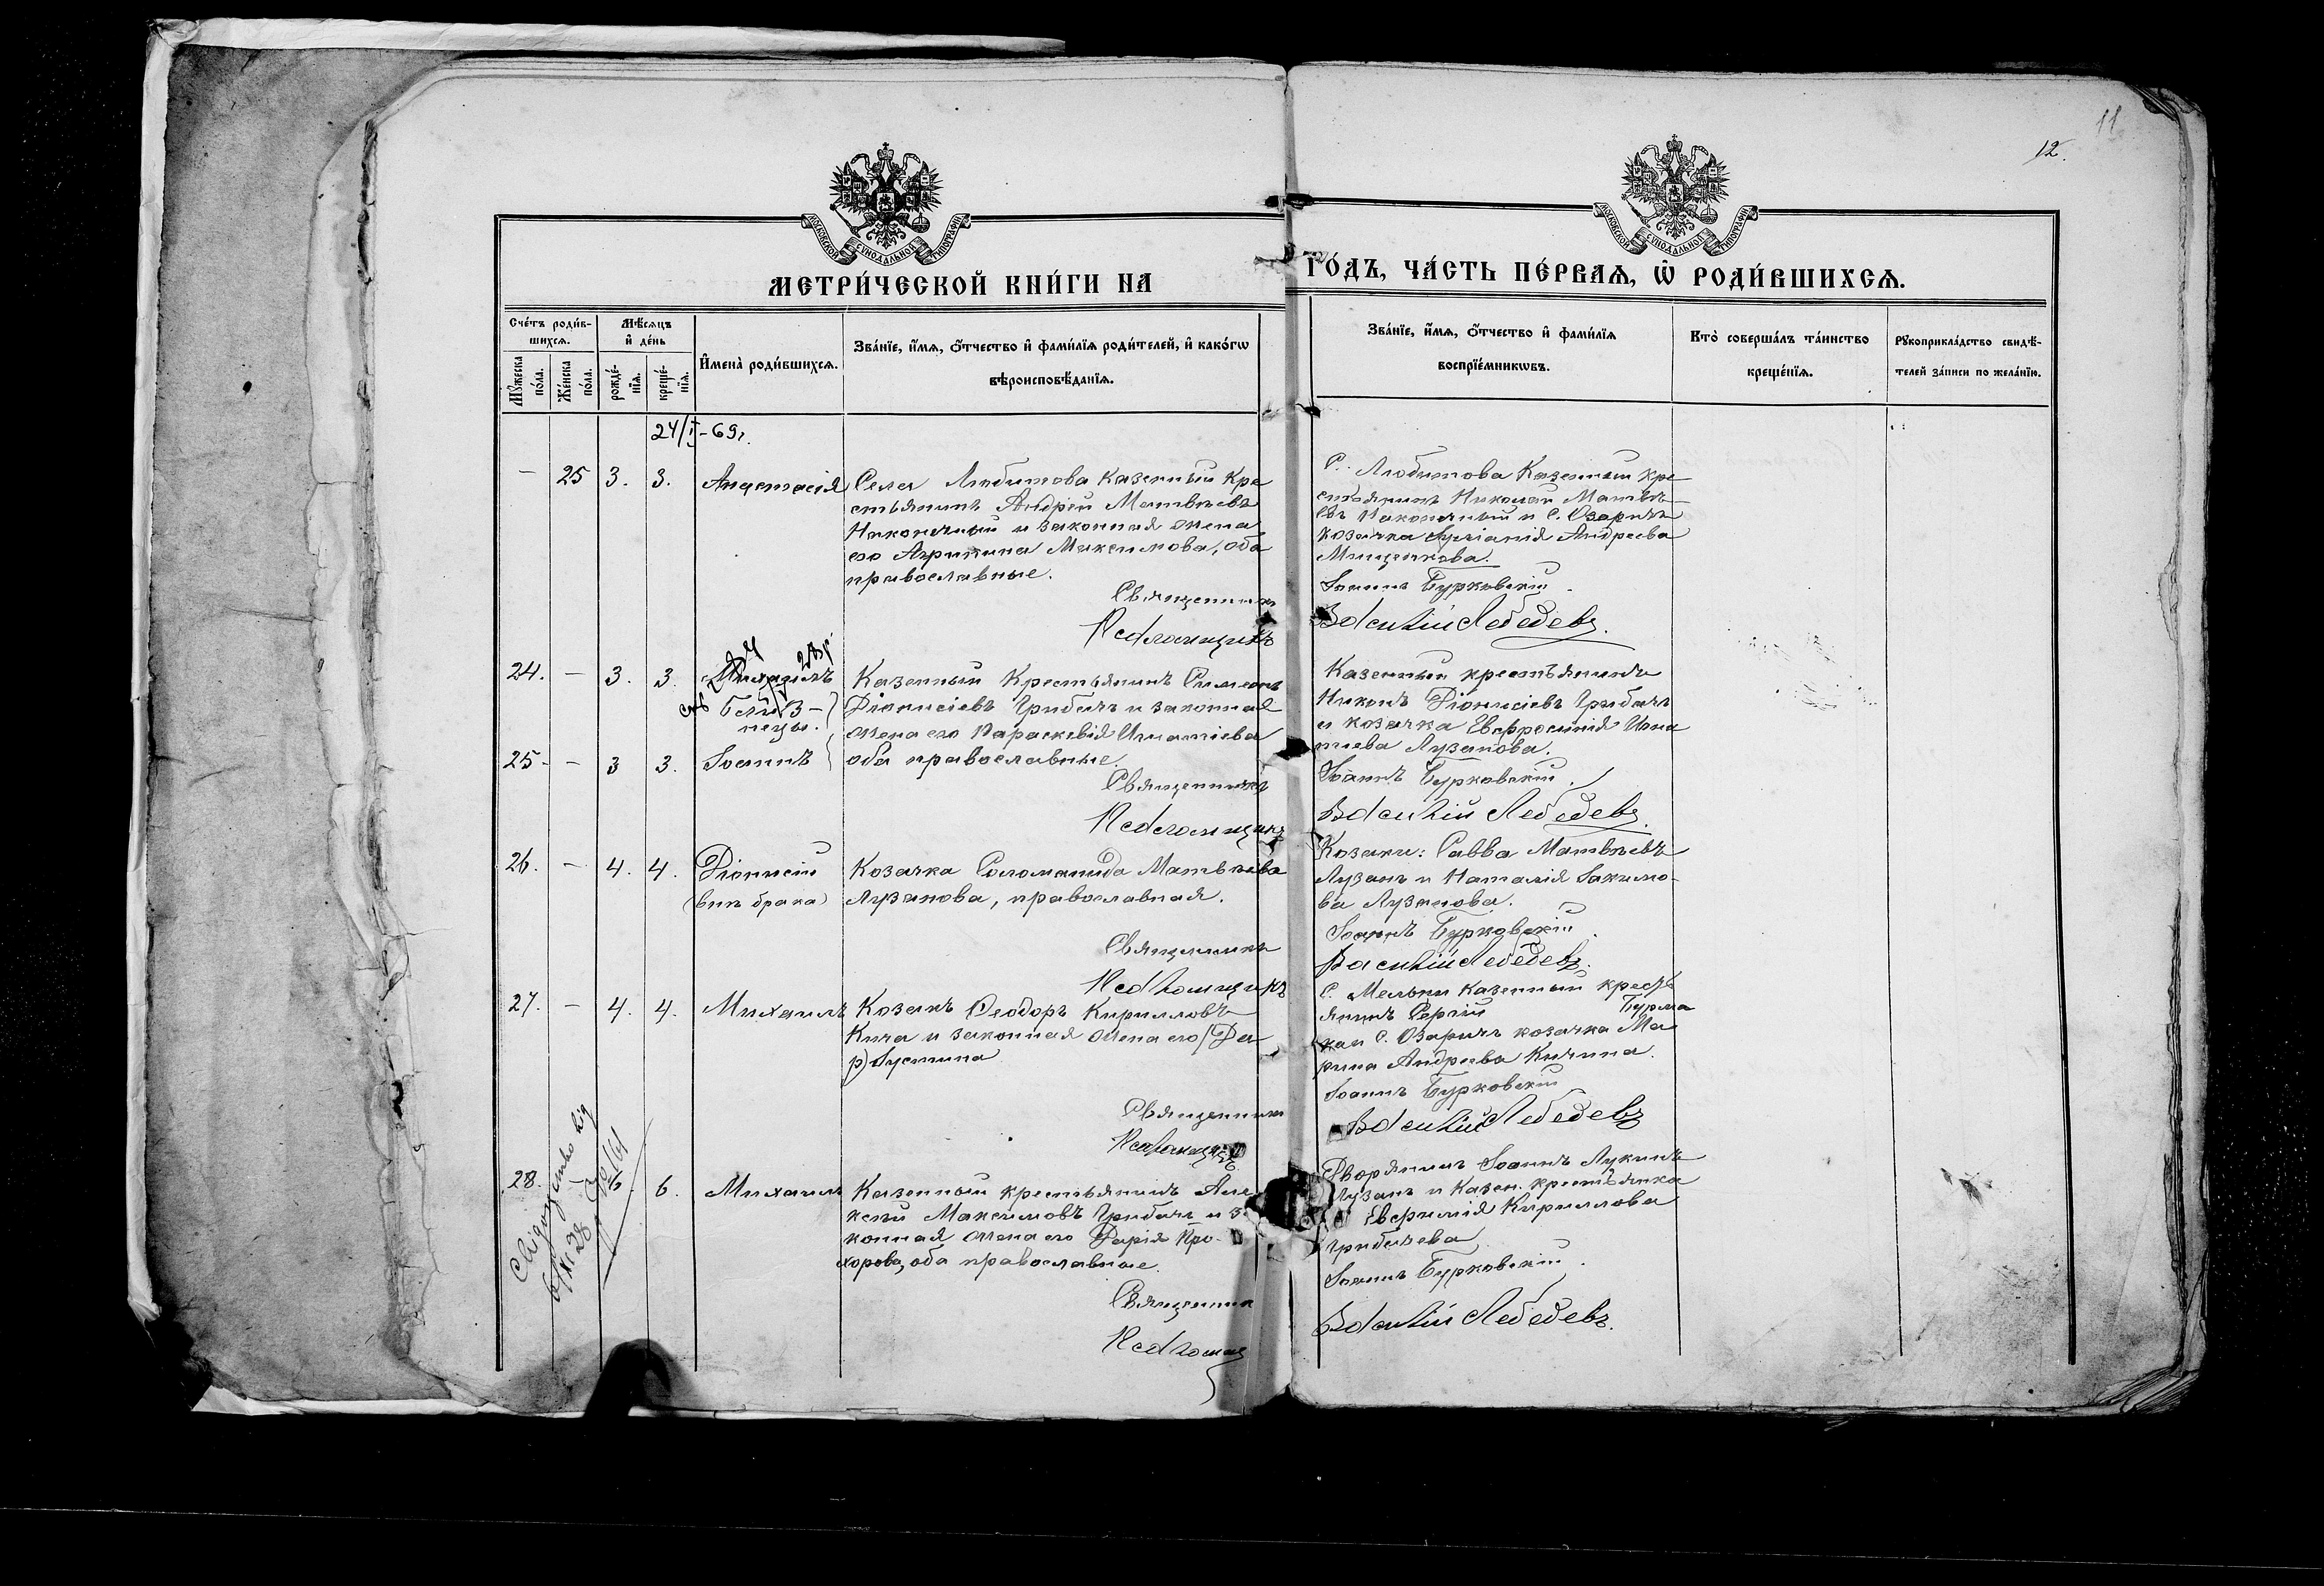 11
12.
МОСКОВСКОЙ СѴНОДАЛЬНОЙ ТИПОГРАФІИ
МОСКОВСКОЙ СѴНОДАЛЬНОЙ ТИПОГРАФІИ
МЕТРИ́ЧЕСКОЙ КНИ́ГИ НА
ГО́ДЪ, ЧА́СТЬ ПЕ́РВАѦ, Ѡ҆ РОДИ́ВШИХСѦ.
Сче́тъ роди́в-
шихсѧ.
Мꙋ́жеска по́ла.
Же́нска по́ла.
Мѣ́сѧцъ
и҆ де́нь
рожде́-
нїѧ.
креще́-
нїѧ.
И҆мена̀ роди́вшихсѧ.
Зва́нїе, и҆́мѧ, ѻ҆́тчество и҆ фами́лїѧ роди́телей, и҆ како́гѡ
вѣроисповѣ́данїѧ.
Зва́нїе, и҆́мѧ, ѻ҆́тчество и҆ фами́лїѧ
воспрїе́мникѡвъ.
Кто̀ соверша́лъ та́инство
креще́нїѧ.
Рꙋкоприкла́дство свидѣ́-
телей за́писи по жела́нїю.
24/I-69г.
— 25 3. 3. Анастасія
Села Любитова Казенный Кре
стьянинъ Андрей Матвѣевъ
Никончный и законная жена
его Агрипина Максимова, оба
православные.
Священникъ
С. Любитова Казенный кре
стьянинъ Николай Матвѣ-
евъ и С. Озаричъ
козачка Андреева
Мищенкова.
Іоаннъ Бурковскій
Василій Лебедевъ.
24. — 3. 3. Михаилъ
Близ-
нецы.
25. — 3 3. Іоаннъ
Казенный Крестьянинъ Симеонъ
Діонисіевъ Грибачъ и законная
жена его Параскевія Игнатіева
оба православные.
Священникъ
Казенный крестьянинъ
Никонъ Діонисіевъ Грибачъ
и козачка Евфросинія Игна
тіева Лузанова.
Іоаннъ Бурковскій.
Василій Лебедевъ.
26. — 4. 4. Діонисій
(внѣ брака)
Козачка Соломанида Матвѣева
Лузанова, православная.
Священникъ
Козаки: Савва Матвѣевъ
Лузанъ и Наталія Іакимо-
ва Лузанова.
Іоаннъ Бурковскій.
Василій Лебедевъ.
27. — 4. 4. Михаилъ
Козакъ Феодоръ Кирилловъ
Кича и законная жена его (Да
р) Іустина
Священникъ
С. Мельни казенный кресть
янинъ Сергій Бурма
кан С. Озаричъ козачка Ма
рина Андреева Кичина.
Іоаннъ Бурковскій
Василій Лебедевъ
28. 6. Михаилъ
Казенный крестьянинъ Але
ксѣй Максимовъ Грибачъ и з
конная жена его Дарія Про-
хорова, оба православные.
Священник
Дворянинъ Іоаннъ Лукинъ
Лузанъ и Казен. крестьянка
Евфимія Кириллова
Грибачева
Іоаннъ Бурковскій.
Василій Лебедевъ.